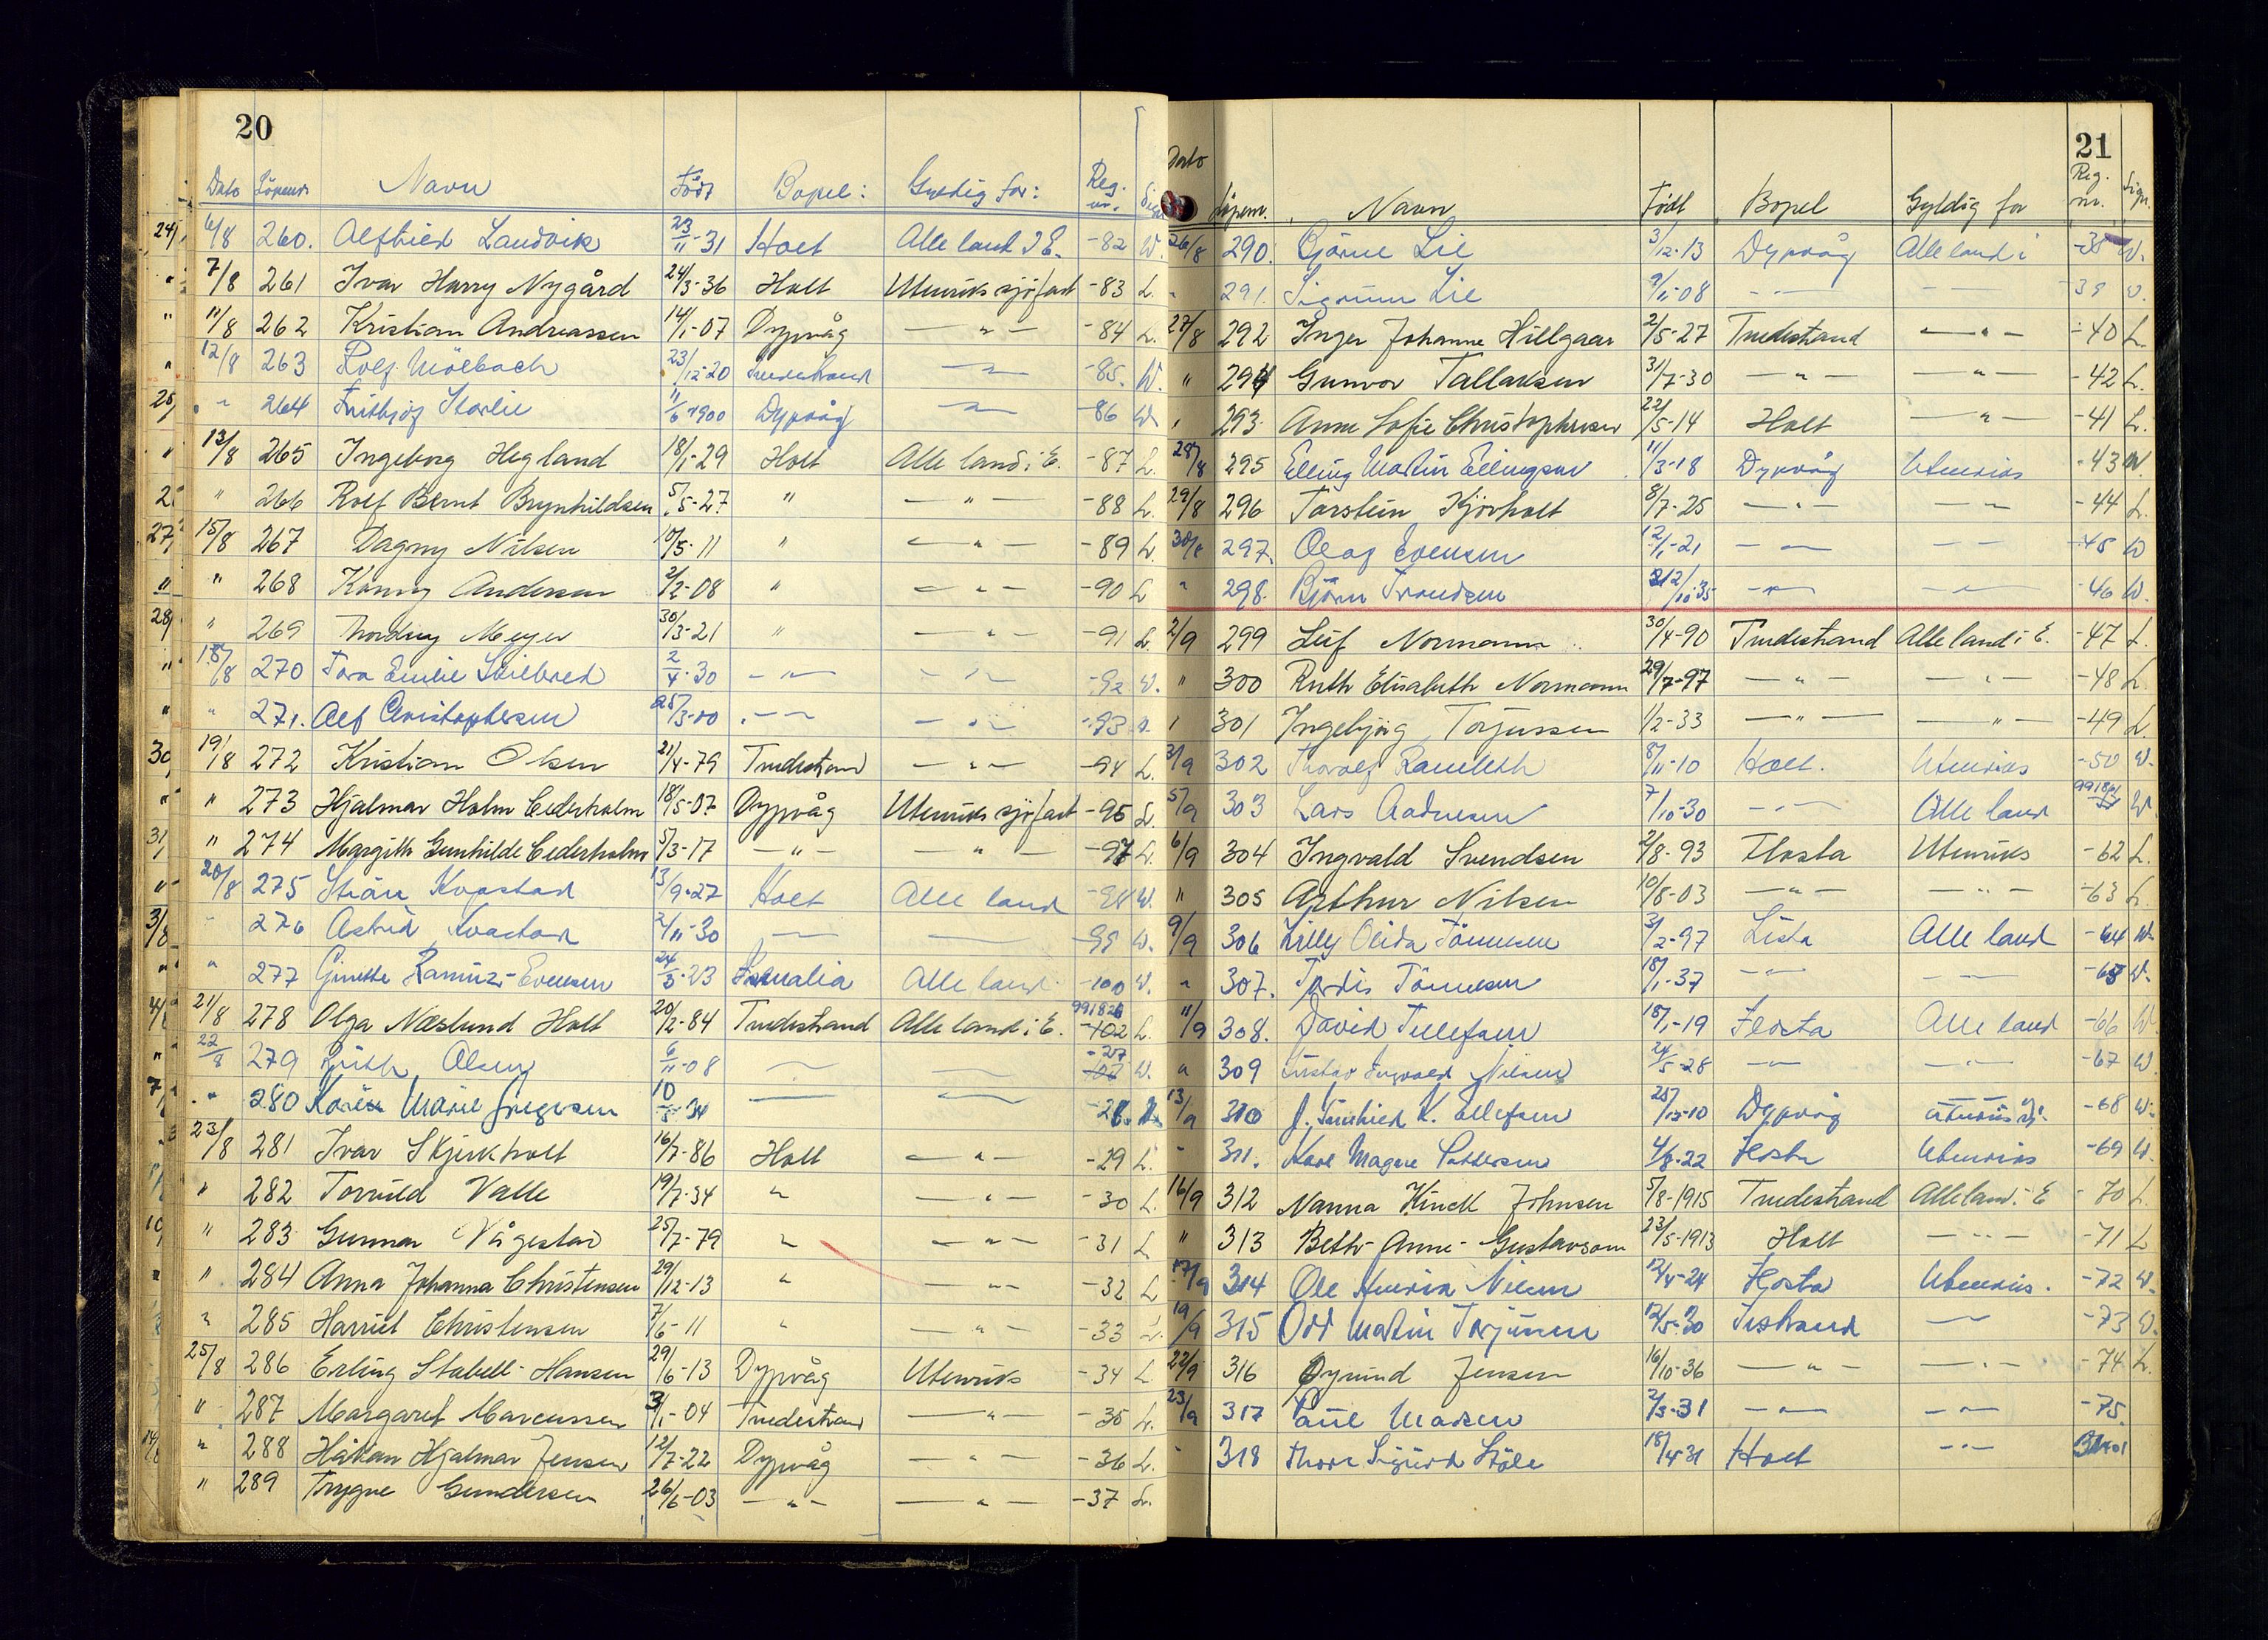 20
Dato Löpenr. Navn Født Bopel: Gyldig for: Reg. nr. Sign
6/8 260. Alfhild Landvik 23/11-31 Holt Alle land i E. -82 W.
7/8 261 Ivar Harry Nygård 24/3-36 Holt Utenriks sjöfart -83 L.
11/8 262 Kristian Andreassen 14/1-07 Dypvåg — " — -84 L.
12/8 263 Rolf Mölbach 23/12-20 Tvedestrand — " — -85. W.
" 264 Frithjof Starlie 11/6-1900 Dypvåg — " — -86 W.
13/8 265 Ingeborg Hegland 18/1-29 Holt Alle land i E. -87 L.
" 266 Rolf Bernt Brynhildsen 5/5-27 " — " — -88 L.
15/8 267 Dagny Nilsen 10/5-11 " — " — -89 L.
" 268 Konny Andersen 2/2-08 " — " — -90 L
" 269 Nordny Meyer 30/3-21 " — " — -91 L.
18/8 270 Tora Emilie Skilbred 2/4-30 — " — — " — -92 W.
" 271. Alf Christophersen 25/3-00 — " — — " — -93 W.
19/8 272 Kristian Olsen 21/4-79 Tvedestrand — " — -94 L.
" 273 Hjalmar Holm Cederholm 18/5-07 Dypvåg Utenriks sjöfart -95 L.
" 274 Margith Gunhilde Cederholm 5/3-17 — " — — " — -97 L.
20/8 275 Kvastad 13/9-27 Holt Alle land -98 W.
" 276 Astrid Kvastad 2/11-30 — — -99 W.
" 277 Ginette Ramirez-Evensen 24/3-23 Alle land -100 W.
21/8 278 Olga Næslund Holt 20/12-84 Tvedestrand Alle land i E. 991826 -102 L.
22/8 279 Ruth Olsen 6/11-08 — — -27 W.
" 280 Karen Marie Jregersen 10/5-34 — — -28
23/8 281 Ivar Skjerkholt 16/7-86 Holt — " — -29 L.
" 282 Torvild Valle 19/7-34 " — " — -30 L.
" 283 Gunnar Vågestad 25/7-79 " — " — -31 L
" 284 Anna Johanna Christensen 29/12-13 " — " — -32 L
" 285 Harriet Christensen 7/6-11 " — " — -33 L.
25/8 286 Erling Stabell-Hansen 29/6-13 Dypvåg Utenriks -34 L
" 287 Margaret Marcussen 3/1-04 Tvedestrand — " — -35 L.
" 288 Håkan Hjalmar Jensen 12/7-22 Dypvåg — " — -36 L.
" 289 Trygve Gundersen 26/6-03 — " — — " — -37 L.
21
Dato Löpenr. Navn Født Bopel Gyldig for Reg. nr. Sign.
26/8 290. Bjärne Lie 3/12-13 Dypvåg Alle land i -38 W.
" 291. Sigrunn Lie 9/11-08 — " — — -39 W.
27/8 292 Inger Johanne Hillgaar 2/5-27 Tvedestrand — " — -40 L.
" 294 Gunvor Tallaksen 31/7-30 — " — — " — -42 L.
" 293 Anne Sofie Christophersen 22/5-14 Holt — " — -41 L.
28/8 295 Elling Martin Ellingsen 11/3-18 Dypvåg Utenriks -43 W.
29/8 296 Torstein Kjörholt 8/7-25 — " — — " — -44 L.
30/8 297. Olag Evensen 12/1-21 — " — — " — -45 W
" 298. Björn Trondsen 12/10-35 — " — — " — -46 W.
2/9 299 Leif Normann 30/4-90 Tvedestrand Alle land i E. -47 L.
" 300 Ruth Elisabeth Normann 29/7-97 — " — — " — -48 L
" 301 Ingebjörg Torjussen 1/2-33 — " — — " — -49 L.
3/9 302 Thorolf Ramleth 8/11-10 Holt. Utenriks -50 W.
5/9 303 Lars Aadnesen 7/10-30 — " — Alle land W.
6/9 304 Ingvald Svendsen 2/8-93 Flosta Utenriks -62 L.
" 305 Arthur Nilsen 10/8-03 — " — — " — -63 L.
9/9 306 Lilly Olida Tönnesen 3/2-97 Lista Alle land -64 W.
" 307. Tordis Tönnesen 18/1-37 — " — — " — -65 W.
11/9 308. David Tellefsen 18/1-19 Flosta Alle land -66 W.
" 309 Gustav Ingvald Nilsen 24/5-28 — " — — " — -67 W
13/9 310 J. Fredrich K. Ellefsen Dypvåg -68 W.
" 311. Kåre Magne Pettersen 4/8-22 Flosta Utenriks -69 W.
16/9 312 Nanna Kinck Johnsen 5/8-1915 Tvedestrand Alle land i E -70 L.
" 313 Beth-Anne-Gustavson 23/5-1913 Holt — " — -71 L
17/9 314 Ole Henrik Nilsen 12/4-24 Flosta Utenriks. -72 W.
19/9 315 Odd Martin Torjussen 12/5-30 — -73 W.
22/9 316 Öyvind Jensen 16/10-36 — " — — " — -74 L.
23/9 317 Paul Madsen 2/3-31 — " — — " — -75
" 318 Thore Sigurd Ståle 18/4-31 Holt — " —